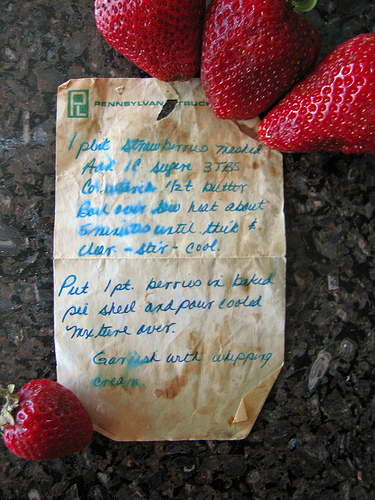 PL
PENNSYLVANIA TRUCK
1 pint strawberries mashed
Add 1C sugar 3TBS
Cornstarch 1/2t butter
Boil over low heat about
5 minutes until thick &
clear - stir - cool.
Put 1 pt. berries in baked
pie shell and pour cooled
mixture over.
Garnish with whipping
cream.